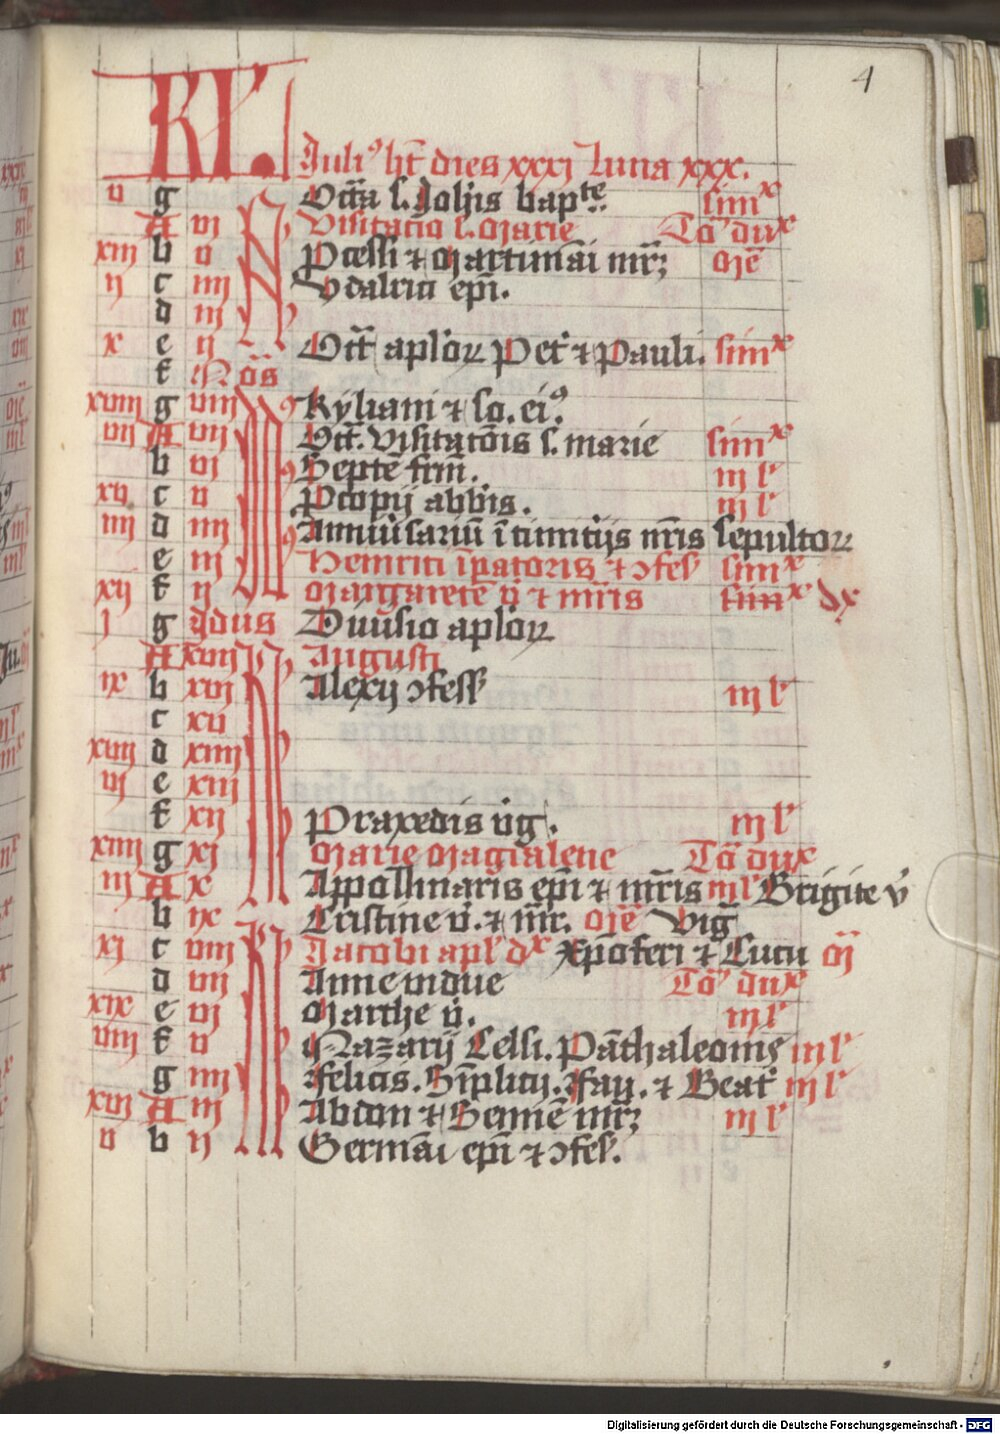 4
KL.
Juliꝰ ht̄ dies xxxj Luna xxx.
v g Octa͞ s. Joh̄is bapᵗᵉ. simˣ
A vj Visitatio s. Marie To͞ duˣ
xiij b v P̱cessi ⁊ Martiniāi mr̄ꝫ Me͞
ij c iiij Vdalrici ep̄i.
d iij
x e ij Oct͞ apl̓oꝝ Pet̓ ⁊ Pauli. simˣ
f No͞s
xviij g viij Kyliani ⁊ so. eiꝰ.
vij A vij Oct͞. Visitatōis s. marie simˣ
b vj Septē fr̄m. iij lᵉ
xv c v P̱copij abb̓is. iij lᵉ
iiij d iiij Anniu̓sariū ī cimit̓ijs nr̄is sepultoꝝ
e iij Heinrici īpatoris ⁊ ɔfess̓ simˣ
xij f ij Margarete v̓ ⁊ mr̄is simˣ dx
j g Jdus Diuisio apl̓oꝝ
A xvij Augusti
ix b xvj Alexij ɔfess̓ iij lᵉ
c xv
xvij d xiiij
vj e xiij
f xij Praxedis v̓ig̓. iij lᵉ
xiiij g xj Marie Magdalene To͞ duˣ
iij A x Appollinaris ep̄i ⁊ mr̄is iij lᵉ Brigite v̓
b ix Cristine v̓. ⁊ mr̄. Me͞ Vig͞
xj c viij Jacobi apl̓ dˣ Xp̄oferi ⁊ Cucu M
d vij Anne vidue To͞ duˣ
xix e vj Marthe v̓. iij lᵉ
viij f v Nazarij Celsi. Pāthaleonis iij lᵉ
g iiij Felicis. Sīplicij. Fau. ⁊ Beat̓ iij lᵉ
xvj A iij Abdon ⁊ Sennē mr̄ꝫ iij lᵉ
v b ij Germāi ep̄i ⁊ ɔfess̓.
Digitalisierung gefördert durch die Deutsche Forschungsgemeinschaft - DFG